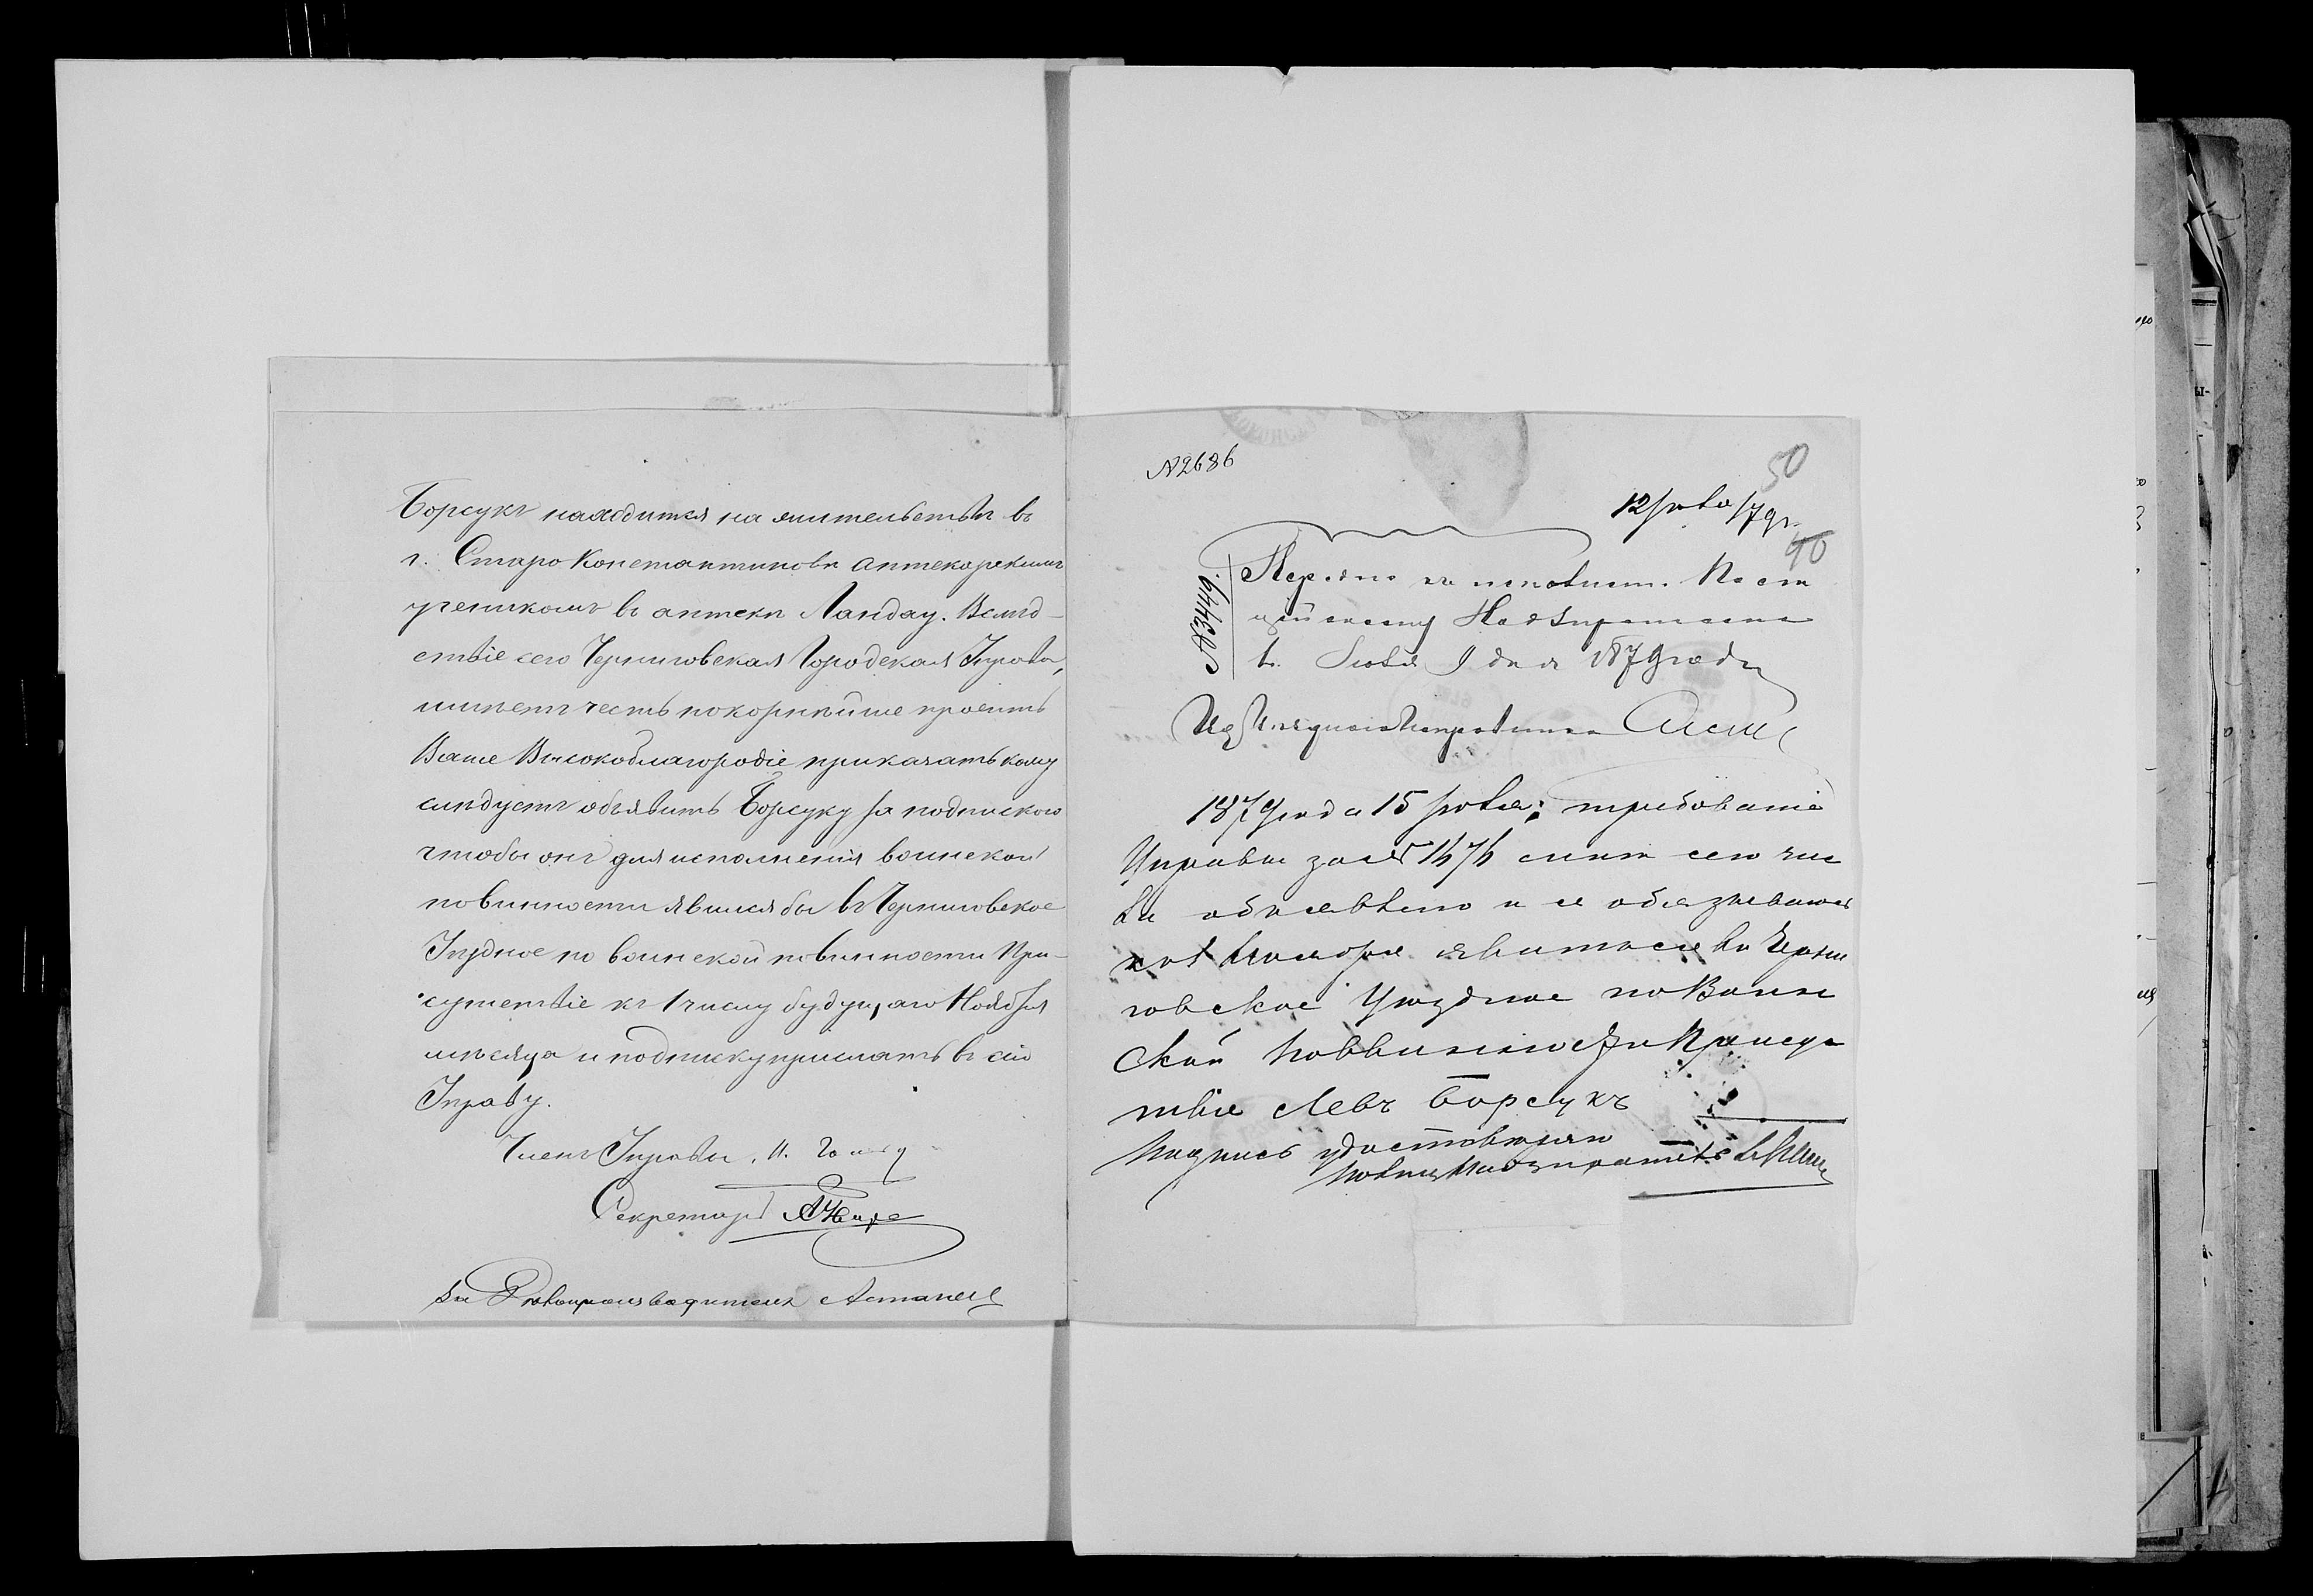 Борсукъ находится на жительствѣ въ
г. Старо Константиновѣ аптекарскимъ
ученикомъ въ аптекѣ Ландау. Вслѣд-
ствіе сего Черниговская Городская Управа,
имѣетъ честь покорнѣйше просить
Ваше Высокоблагородіе приказать кому
слѣдуетъ объявить Борсуку за подпискою
чтобы онъ для исполненія воинской
повинности явился бы въ Черниговское
Уѣздное по воинской повинности При-
сутствіе къ 1 числу будущаго Ноября
мѣсяца и подписку прислать въ сію
Управу.
Членъ Управы, И.
Секретарь
За Дѣлопроизводителя
№ 2686
50
12 Іюля 79 г.
40
№ 3449.
Поли
цейскому Надзирателю
Іюля 9 дня 1879 года
Исправника
1879 года 15 Іюля; требованіе
Управы за № 1676 мнѣ сего чис
ла объявлено и я обязываюсь
къ 1 Ноября явиться въ Черни
говское Уѣздное по Воин
ской повинности Присут
твіе Левъ Борсукъ
Подпись удостовѣряю
Полиц Надзиратель